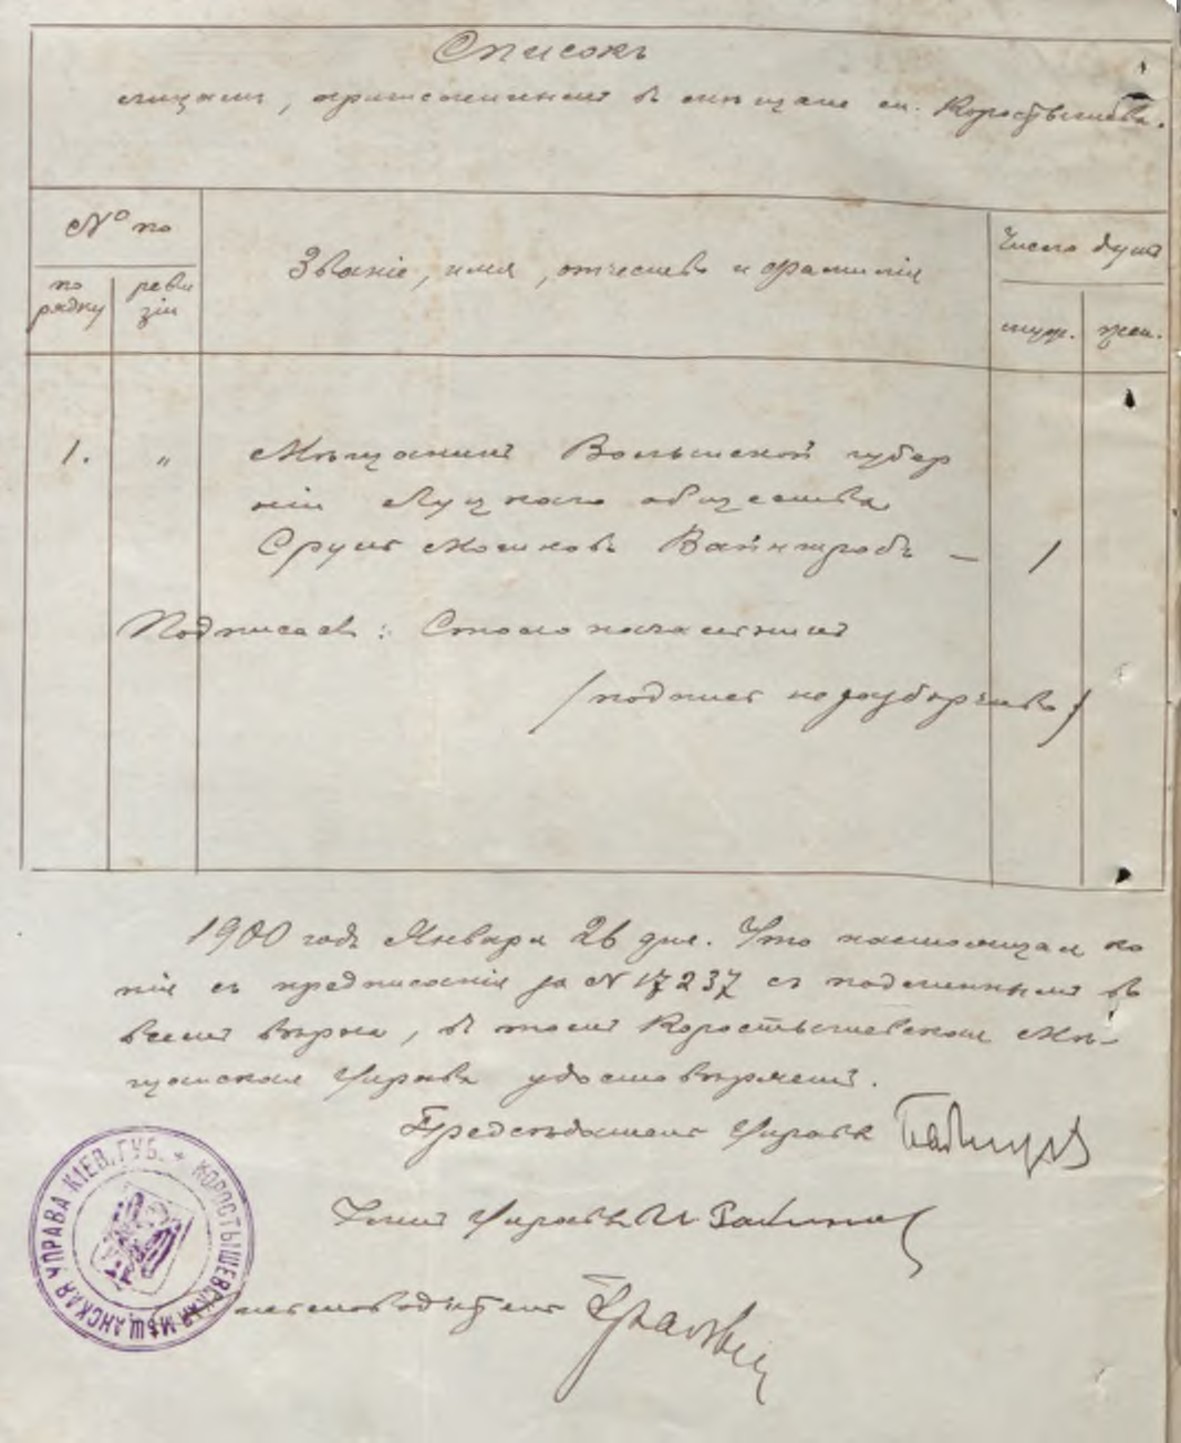 Списокъ
лицамъ, приписаннымъ въ мѣщане м. Коростышева.
№ по
Званіе, имя, отчество и фамилія
Число душъ
по
рядку
реви
зіи
муж.
жен.
1.
"
Мѣщанинъ Волынской губер
ніи Луцкаго общества
Сруль Мошковъ Вайнтробъ — 1
Подписалъ: Столоначальникъ
/подпись неразборчива/
1900 года Января 26 дня. Что настоящая ко
пія съ предписанія за N 17237 съ подлиннымъ во
всемъ вѣрна, въ томъ Коростышевская Мѣ-
щанская Управа удостовѣряетъ.
Предсѣдатель Управы
Членъ Управы
Письмоводитель
КОРОСТЫШЕВСКАЯ МѢЩАНСКАЯ УПРАВА КІЕВ. ГУБ.